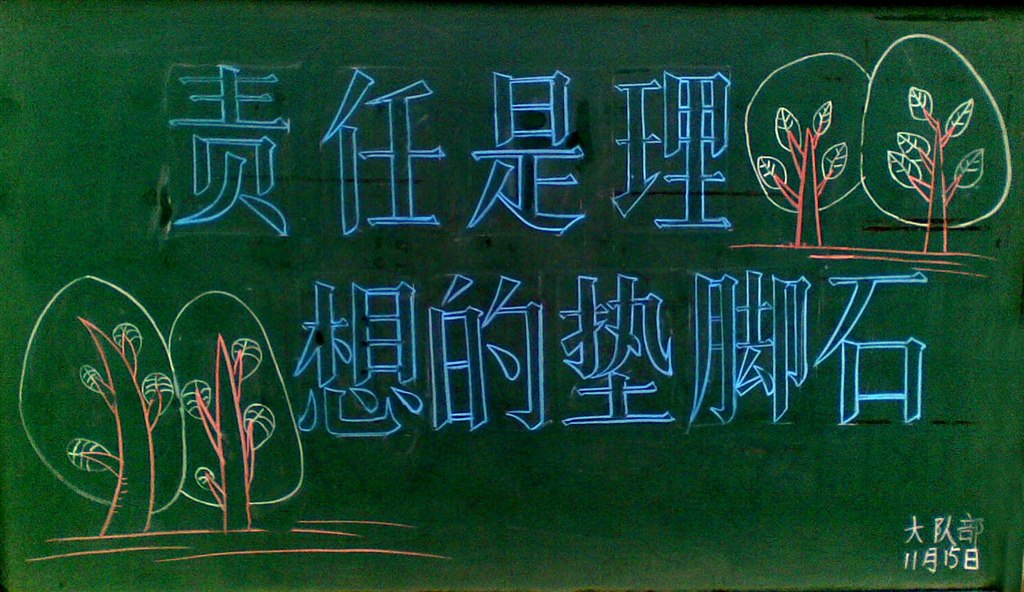 责任是理
想的垫脚石
大队部
11月15日